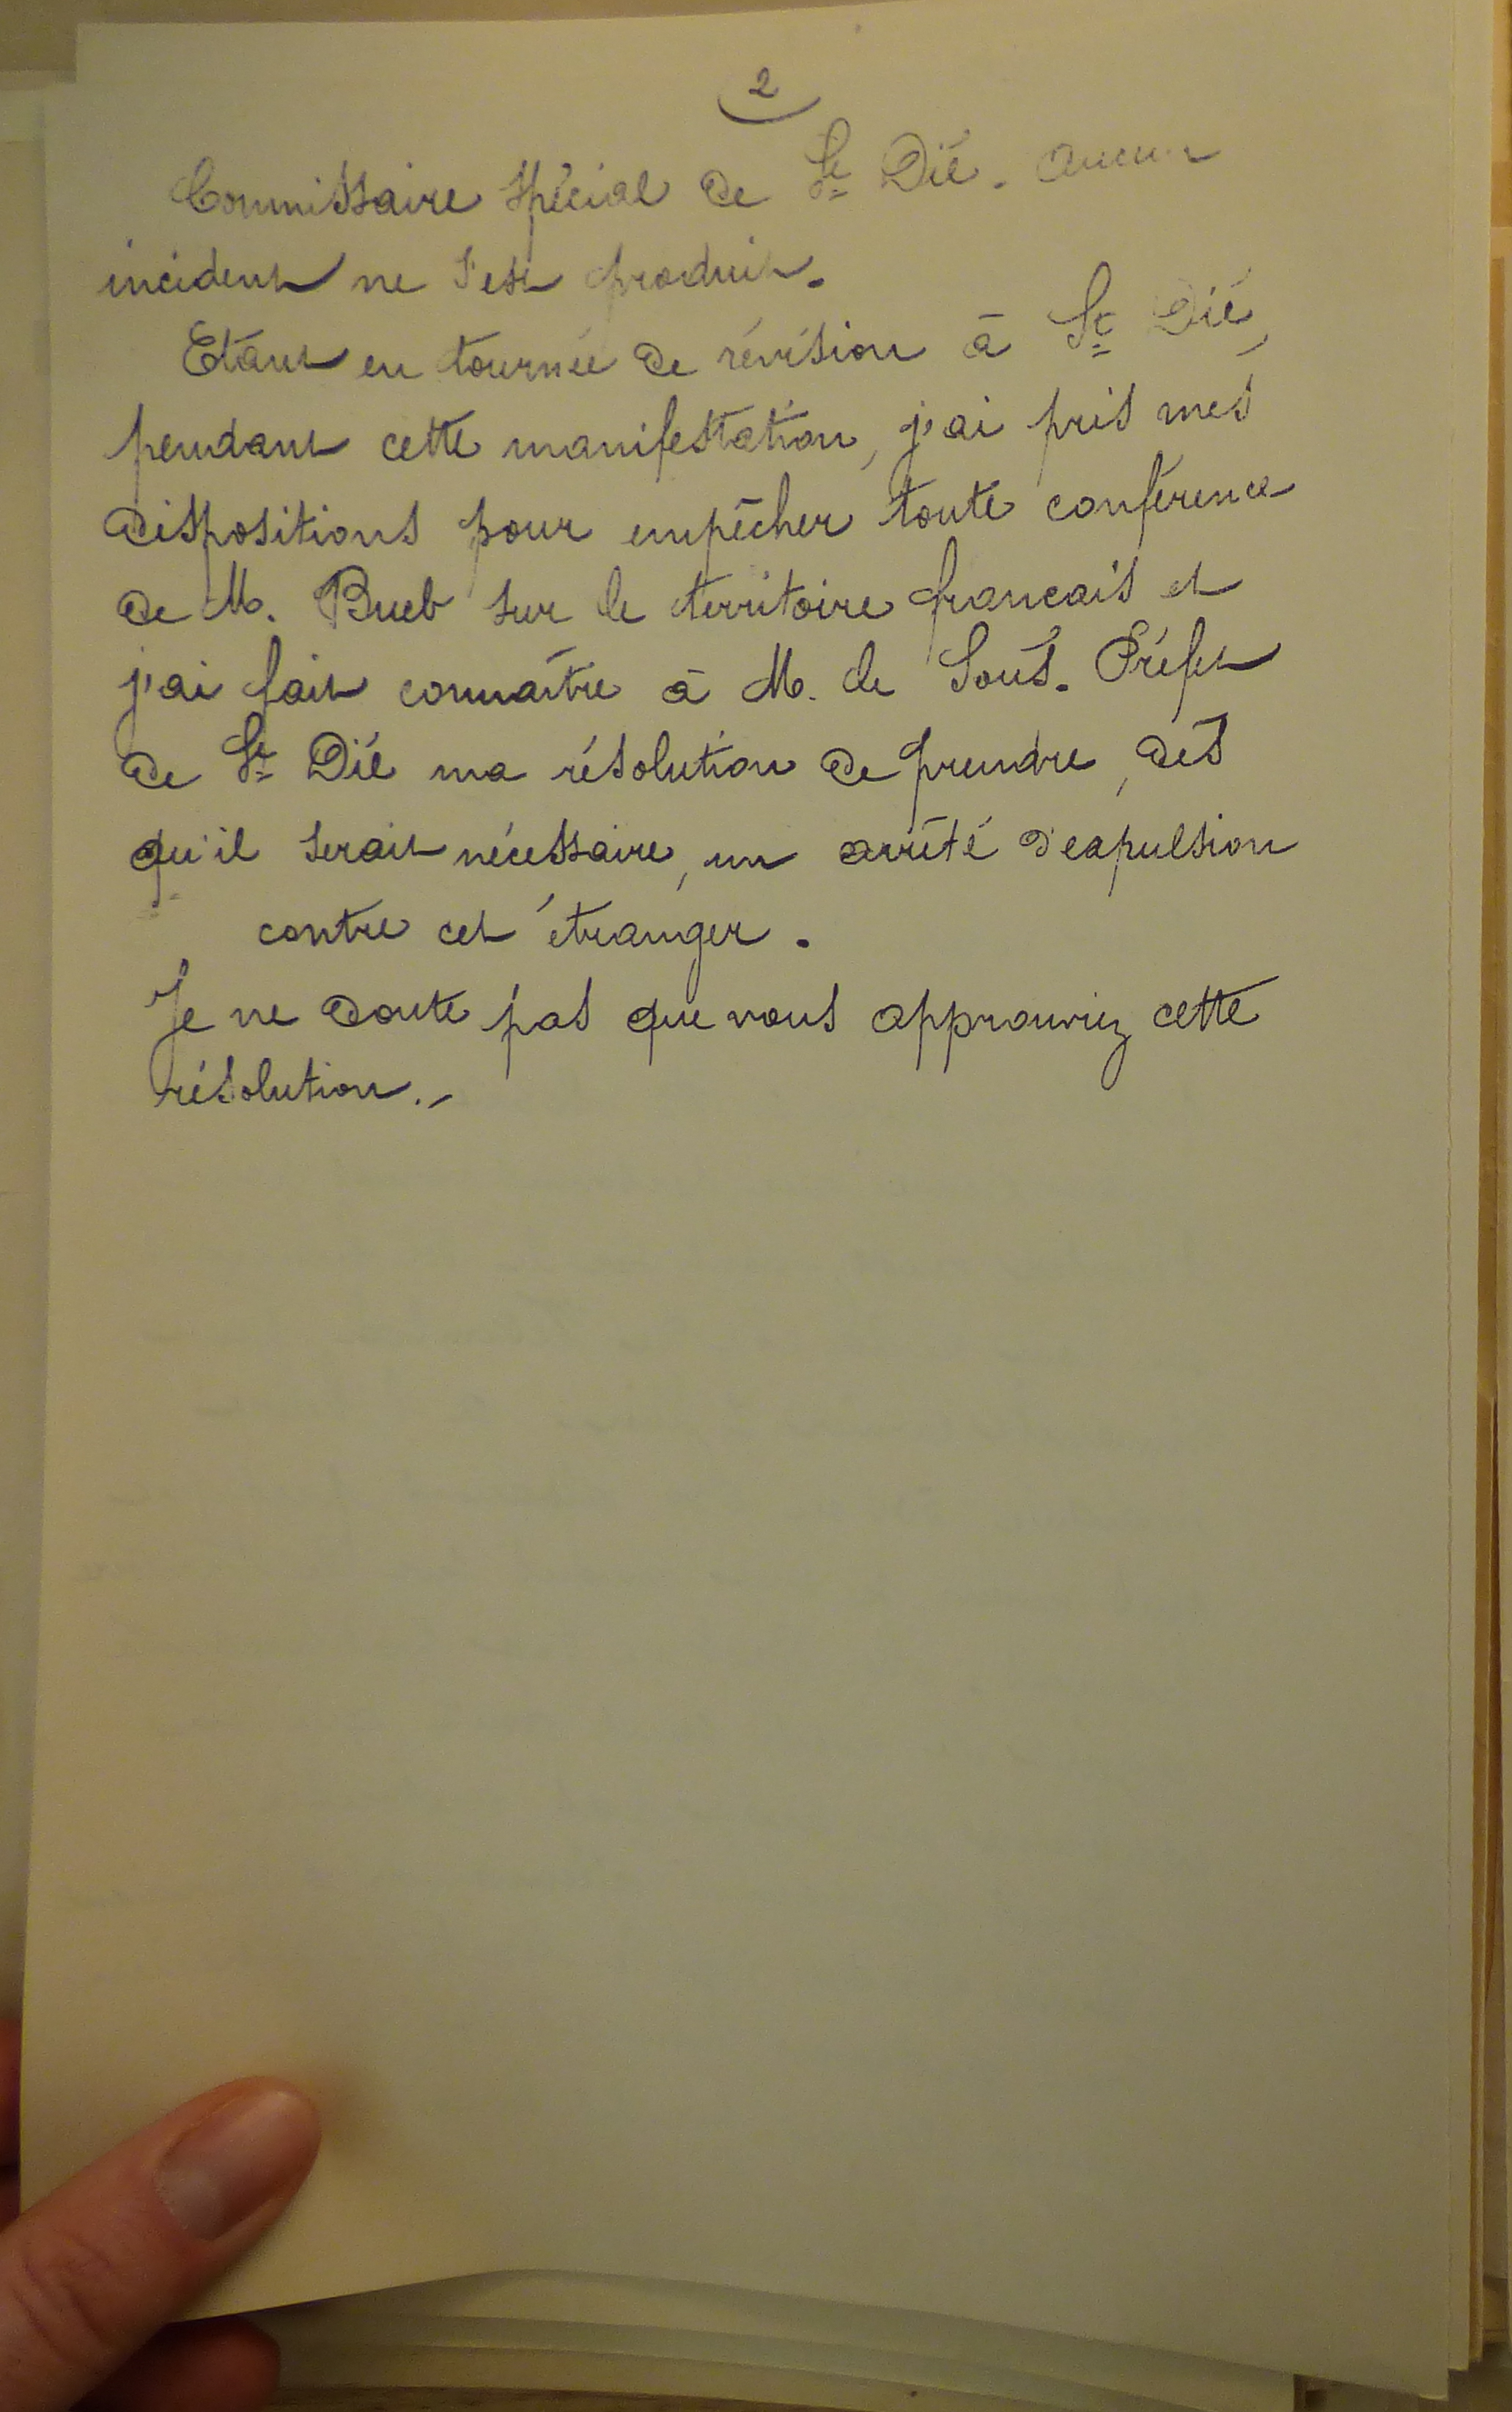 2
Commissaire spécial de St Dié. Aucun
incident ne s'est produit.
Etant en tournée de révision à St Dié,
pendant cette manifestation, j'ai pris mes
dispositions pour empêcher toute conférence
de M. Bueb sur le territoire français et
j'ai fait connaître à M. le Sous-Préfet
de St Dié ma résolution de prendre, dès
qu'il serait nécessaire, un arrêté d'expulsion
contre cet étranger.
Je ne doute pas que vous approuviez cette
résolution.-